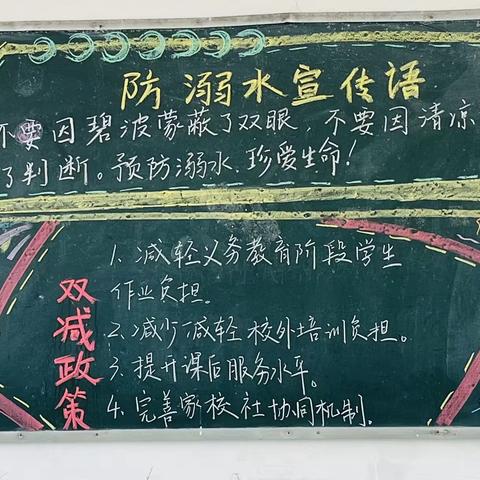 防溺水宣传语
不要因碧波蒙蔽了双眼，不要因清凉
了判断。预防溺水.珍爱生命！
双减政策
1. 减轻义务教育阶段学生
作业负担.
2.减少减轻校外培训负担。
3.提升课后服务水平。
4.完善家校社协同机制.